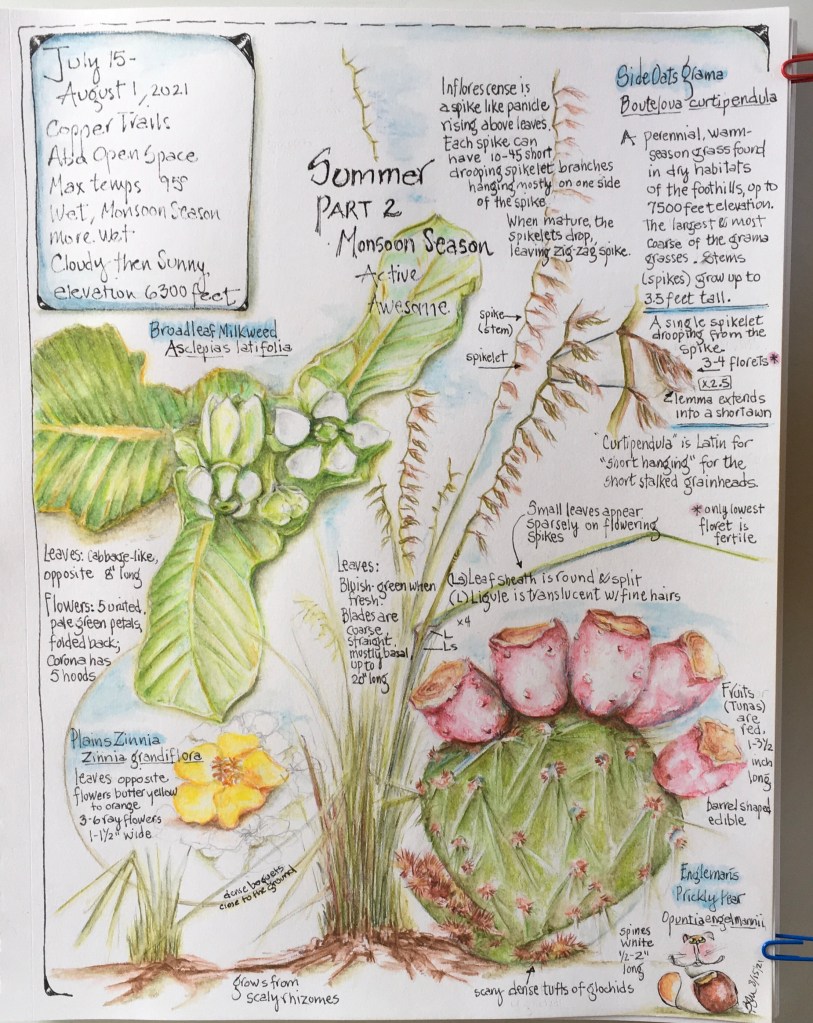 July 15-
August 1, 2021
Copper Trails
Max temps 95°
Wet, Monsoon Season
more wet.
Cloudy then Sunny,
elevation 6300 feet
Summer
PART 2
Monsoon Season
Active
Awesome
Inflorescense is
a spike like panicle
rising above leaves.
Each spike can
have 10-45 short
drooping spikelet branches
hanging mostly on one side
of the spike.
When mature, the
spikelets drop,
leaving zig-zag spike.
Side Oats grama
Bouteloua curtipendula
A perennial, warm-
season grass found
in dry habitats
of the foothills, up to
7500 feet elevation.
The largest & most
coarse of the grama
grasses. Stems
(spikes) grow up to
3.5 feet tall.
spike
(stem)
spikelet
A single spikelet
drooping from the
spike.
3-4 florets*
x2.5
lemma extends
into a short awn
"Curtipendula" is Latin for
"short hanging" for the
short stalked grainheads.
*only lowest
floret is
fertile
Broadleaf Milkweed
Asclepias latifolia
Leaves: cabbage-like,
opposite 8" long
Flowers: 5 united,
pale green petals,
folded back;
Corona has
5 hoods
Small leaves appear
sparsely on flowering
spikes
Leaves:
Bluish-green when
fresh.
Blades are
coarse,
straight,
mostly basal,
up to
20" long
(Ls) Leaf sheath is round & split
(L) Ligule is translucent w/ fine hairs
x4
L
Ls
Plains Zinnia
Zinnia grandiflora
leaves opposite
flowers butter yellow
to orange
3-6 ray flowers
1-1½" wide
dense boquets
close to the ground
grows from
scaly rhizomes
Fruits
(Tunas)
are
red.
1-3½
inch
long
barrel shaped
edible
Engleman's
Prickly Pear
Opuntia engelmannii
spines
white
½-2"
long
scary dense tufts of glochids